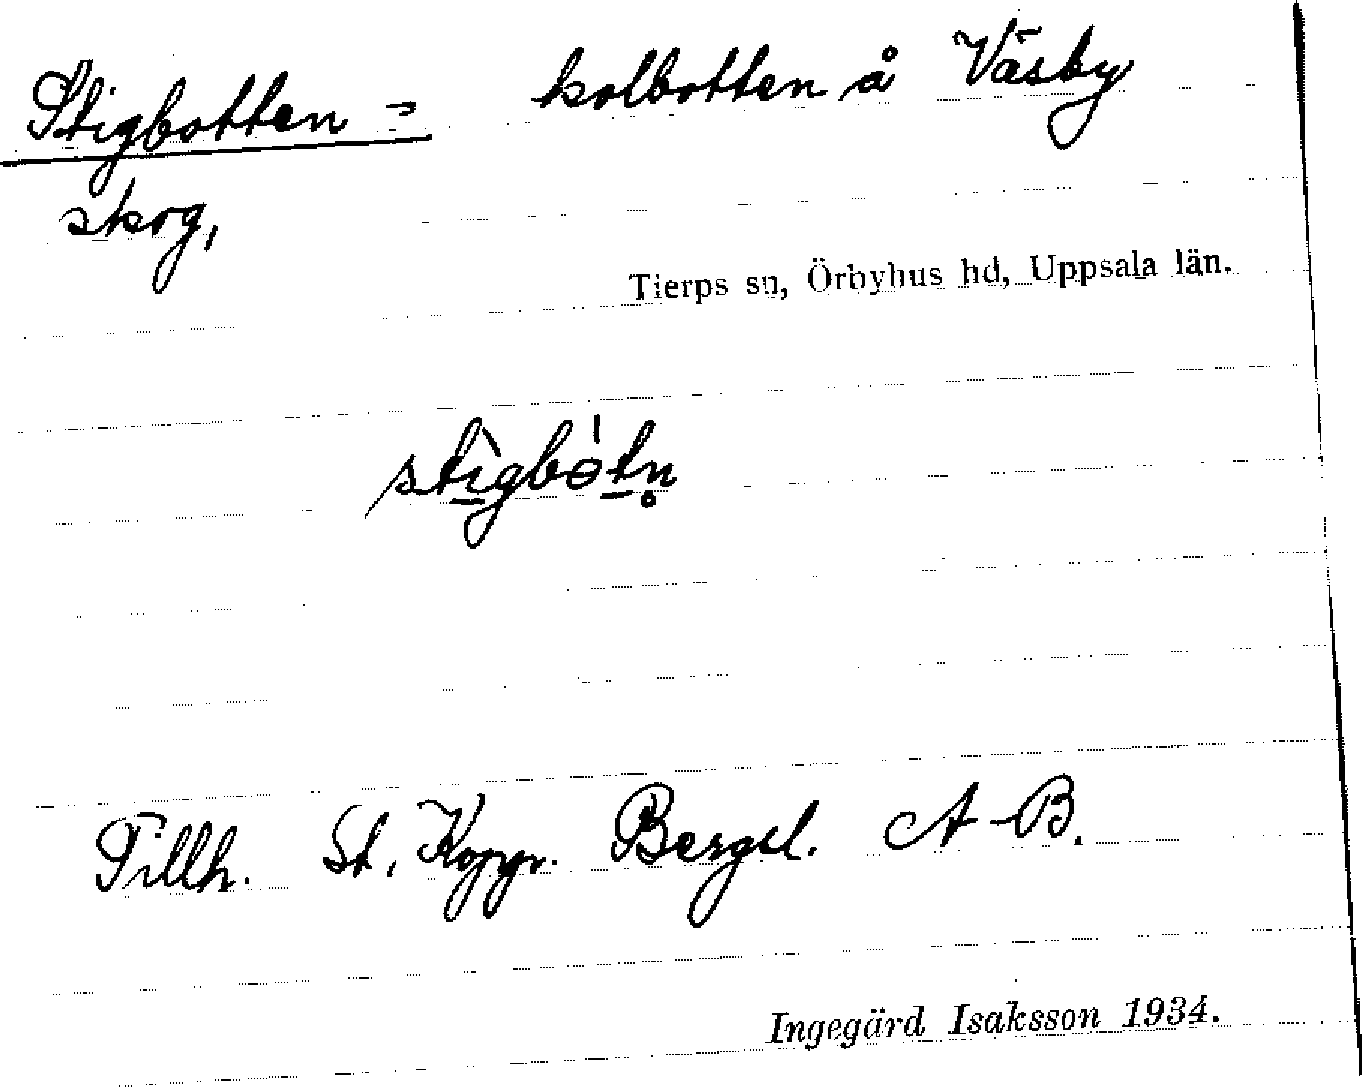 Stigbotten = kolbotten å Väsby
skog,
Tierps sn, Örbyhus hd, Uppsala län.
stìgbòtn̥
Tillh. St. Koppr. Bergsl. A-B.
Ingegärd Isaksson 1934.